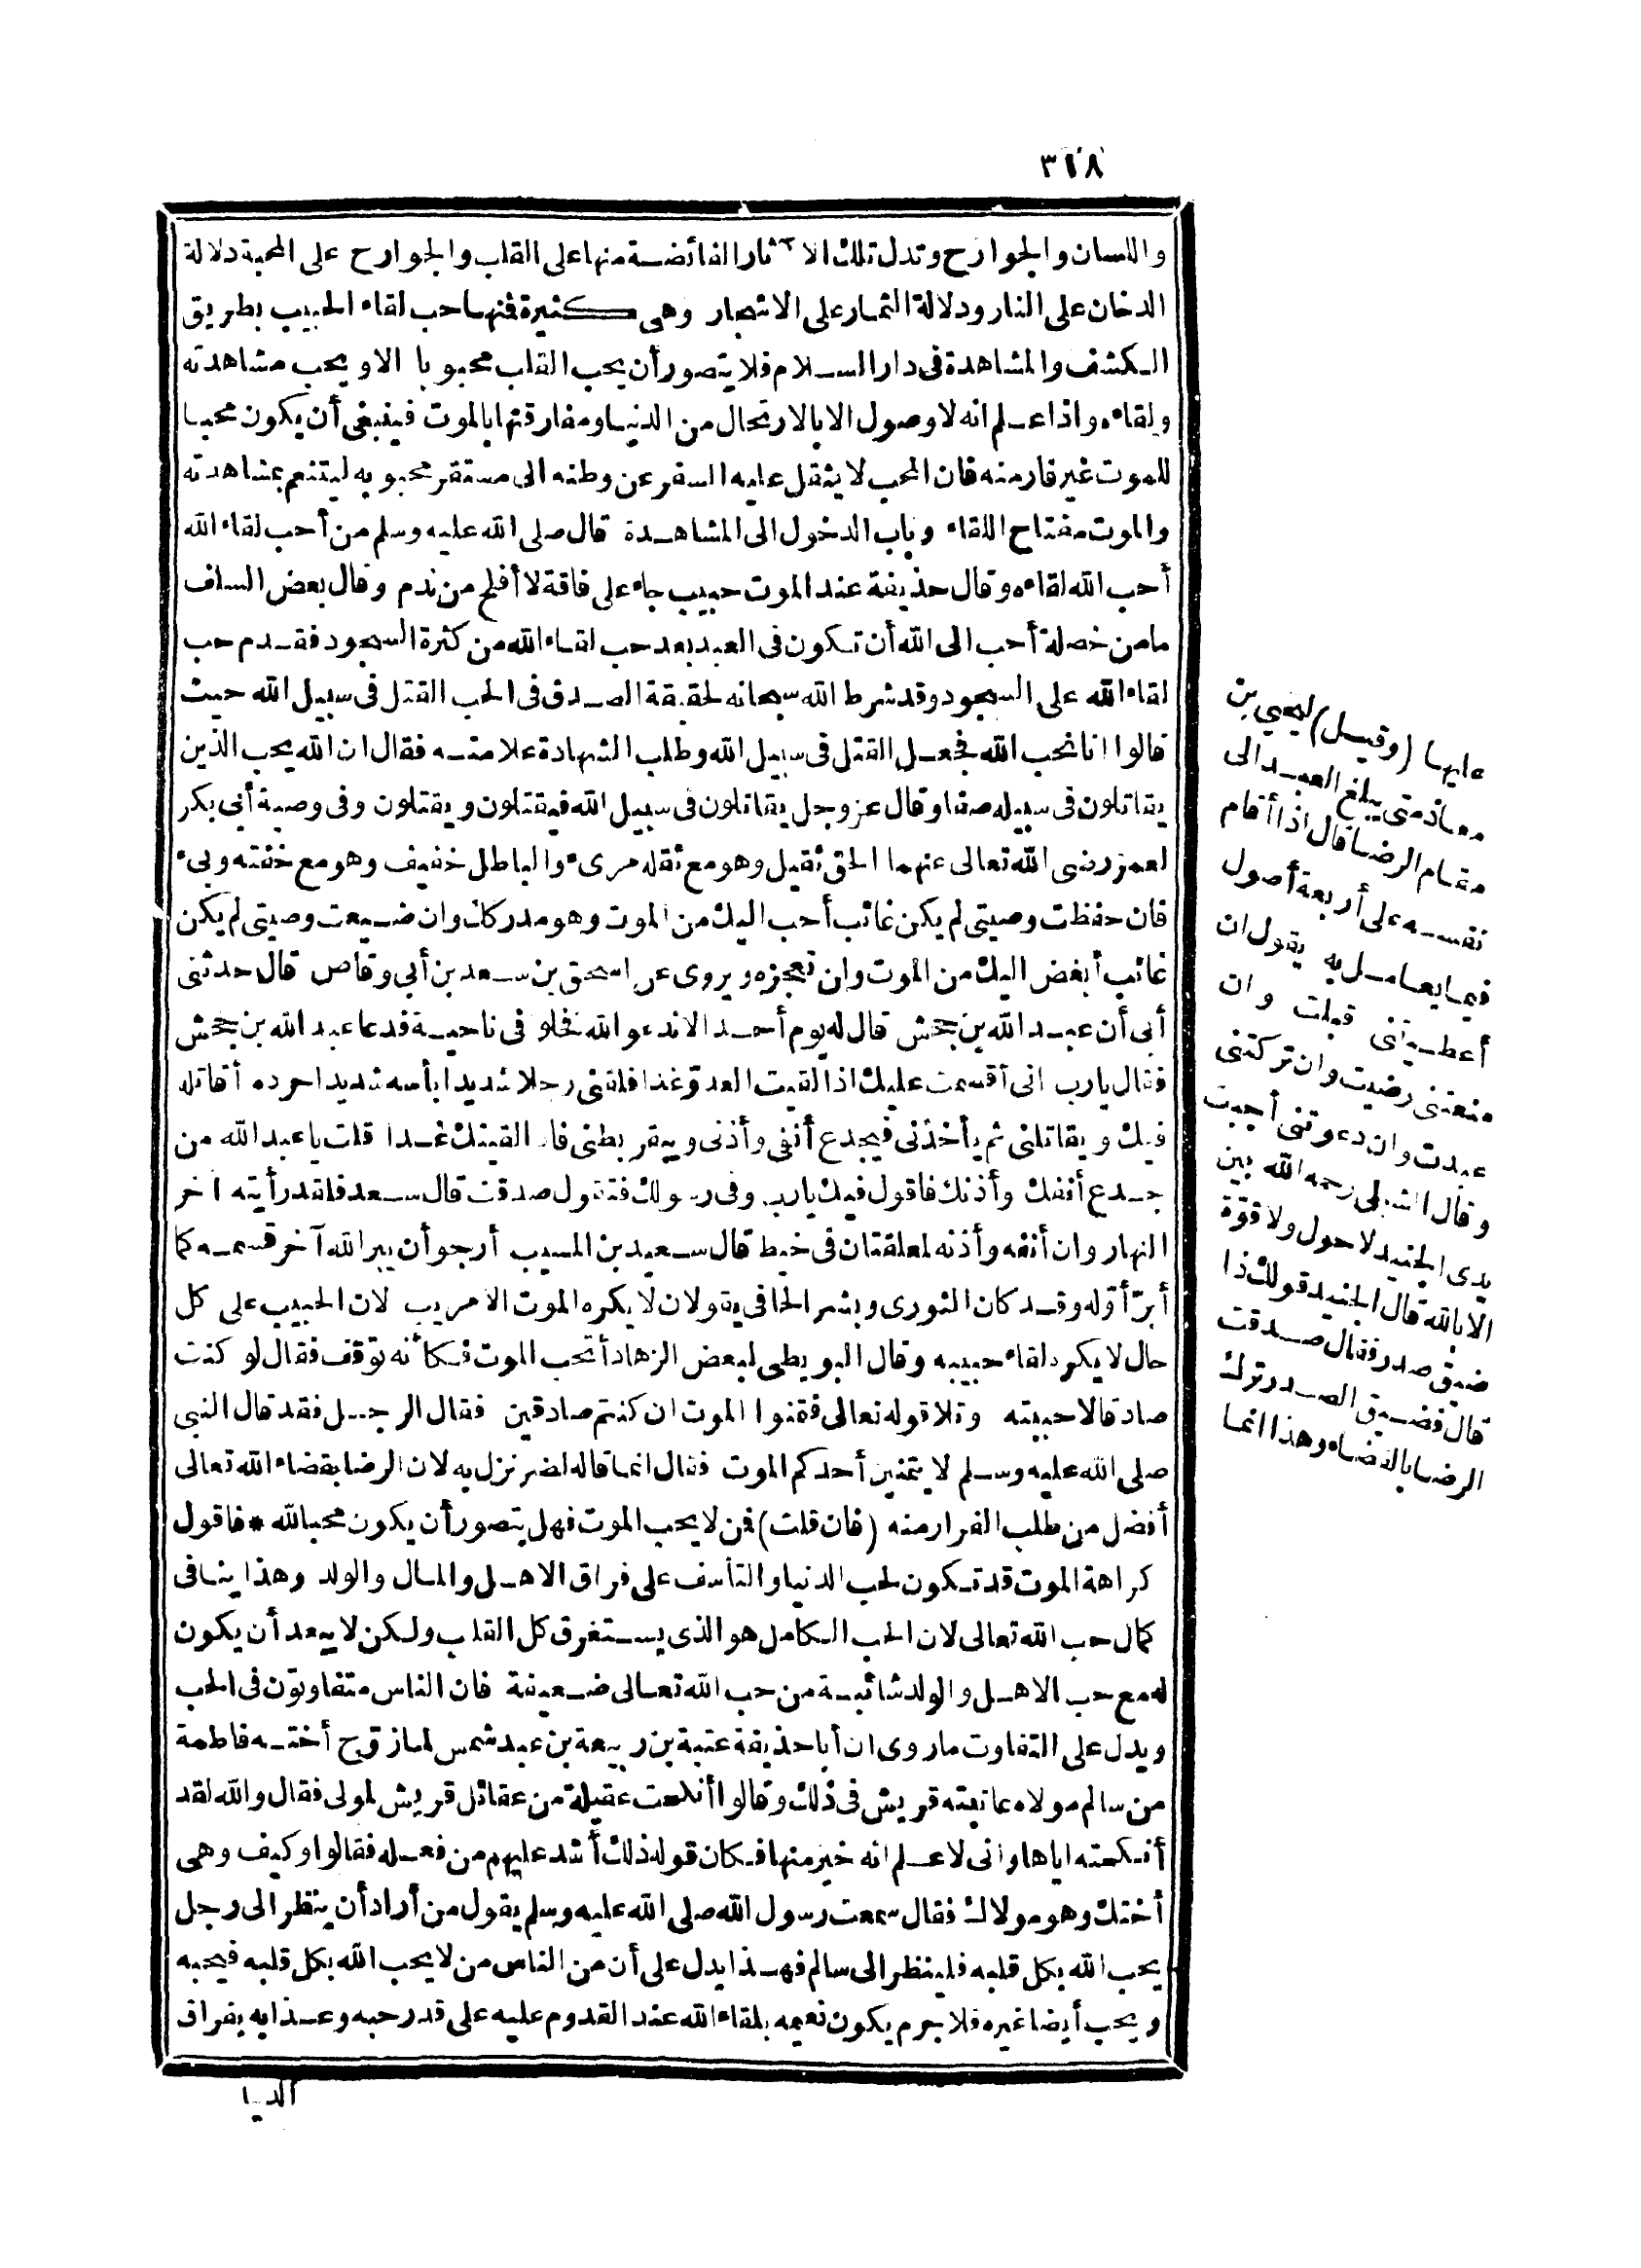 ٣١٨
واللسان والجوارح وتدل تلك الآثار الفائضة منها على القلب والجوارح على المحبة دلالة
الدخان على النار ودلالة الثمار على الاشجار وهى كثيرة فمنها حب لقاء الحبيب بطريق
الكشف والمشاهدة فى دار السلام فلا يتصور أن يحب القلب محبوبا الا ويحب مشاهدته
ولقاءه واذا علم انه لا وصول الا بالارتحال من الدنيا ومفارقتها بالموت فينبغى أن يكون محبا
للموت غير فار منه فان المحب لا يثقل عليه السفر عن وطنه الى مستقر محبوبه ليتنعم بمشاهدته
والموت مفتاح اللقاء وباب الدخول الى المشاهدة قال صلى الله عليه وسلم من أحب لقاء الله
أحب الله لقاءه وقال حذيفة عند الموت حبيب جاء على فاقة لا أفلح من ندم وقال بعض السلف
ما من خصلة أحب الى الله أن تكون فى العبد بعد حب لقاء الله من كثرة السجود فقدم حب
لقاء الله على السجود وقد شرط الله سبحانه لحقيقة الصدق فى الحب القتل فى سبيل الله حيث
قالوا انا نحب الله فجعل القتل فى سبيل الله وطلب الشهادة علامته فقال ان الله يحب الذين
يقاتلون فى سبيله صفا وقال عز وجل يقاتلون فى سبيل الله فيقتلون ويقتلون وفى وصية أبى بكر
لعمر رضى الله تعالى عنهما الحق ثقيل وهو مع ثقله مرىء والباطل خفيف وهو مع خفته وبىء
فان حفظت وصيتى لم يكن غائب أحب اليك من الموت وهو مدركك وان ضيعت وصيتى لم يكن
غائب أبغض اليك من الموت وان تعجزه ويروى عن اسحق بن سعد بن أبى وقاص قال حدثنى
أبى أن عبد الله بن جحش قال له يوم أحد الا ندعو الله فخلو فى ناحية فدعا عبد الله بن جحش
فقال يارب انى أقسمت عليك اذا لقيت العدو غدا فلقنى رجلا شديدا بأسه شديدا حرده أقاتله
فيك ويقاتلنى ثم يأخذنى فيجدع أنفى وأذنى ويبقر بطنى فاذا لقيتك غدا قلت يا عبد الله من
جدع أنفك وأذنك فاقول فيك يارب وفى رسولك فتقول صدقت قال سعد فلقد رأيته آخر
النهار وان أنفه وأذنه لمعلقتان فى خيط قال سعيد بن المسيب أرجو أن يبر الله آخر قسمه كما
أبرّ أوّله وقد كان الثورى وبشر الحافى يقولان لا يكره الموت الا مريب لان الحبيب على كل
حال لا يكره لقاء حبيبه وقال البويطى لبعض الزهاد أتحب الموت فكأنه توقف فقال لو كنت
صادقا لاحببته وتلا قوله تعالى فتمنوا الموت ان كنتم صادقين فقال الرجل فقد قال النبى
صلى الله عليه وسلم لا يتمنين أحدكم الموت فقال انما قاله لضر نزل به لان الرضا بقضاء الله تعالى
أفضل من طلب الفرار منه (فان قلت) فمن لا يحب الموت فهل يتصور أن يكون محبا لله * فاقول
كراهة الموت قد تكون لحب الدنيا والتأسف على فراق الاهل والمال والولد وهذا ينافى
كمال حب الله تعالى لان الحب الكامل هو الذى يستغرق كل القلب ولكن لا يبعد أن يكون
له مع حب الاهل والولد شائبة من حب الله تعالى ضعيفة فان الناس متفاوتون فى الحب
ويدل على التفاوت ما روى ان أبا حذيفة عتبة بن ربيعة بن عبد شمس لما زوج أخته فاطمة
من سالم مولاه عاتبته قريش فى ذلك وقالوا أنكحت عقيلة من عقائل قريش لمولى فقال والله لقد
أنكحته اياها وانى لاعلم انه خير منها فكان قوله ذلك أشد عليهم من فعله فقالوا وكيف وهى
أختك وهو مولاك فقال سمعت رسول الله صلى الله عليه وسلم يقول من أراد أن ينظر الى رجل
يحب الله بكل قلبه فلينظر الى سالم فهذا يدل على أن من الناس من لا يحب الله بكل قلبه فيحبه
ويحب أيضا غيره فلا جرم يكون نعيمه بلقاء الله عند القدوم عليه على قدر حبه وعذابه بفراق
الدنيا
عليها (وقيل) ليحيى بن
معاذ متى يبلغ العبد الى
مقام الرضا قال اذا أقام
نفسه على أربعة أصول
فيما يعامل به يقول ان
أعطيتنى قبلت وان
منعتنى رضيت وان تركتنى
عبدت وان دعوتنى أجبت
وقال الشبلى رحمه الله بين
يدى الجنيد لا حول ولا قوّة
الّا بالله قال الجنيد قولك ذا
ضيق صدر فقال صدقت
قال فضيق الصدر ترك
الرضا بالقضاء وهذا انما